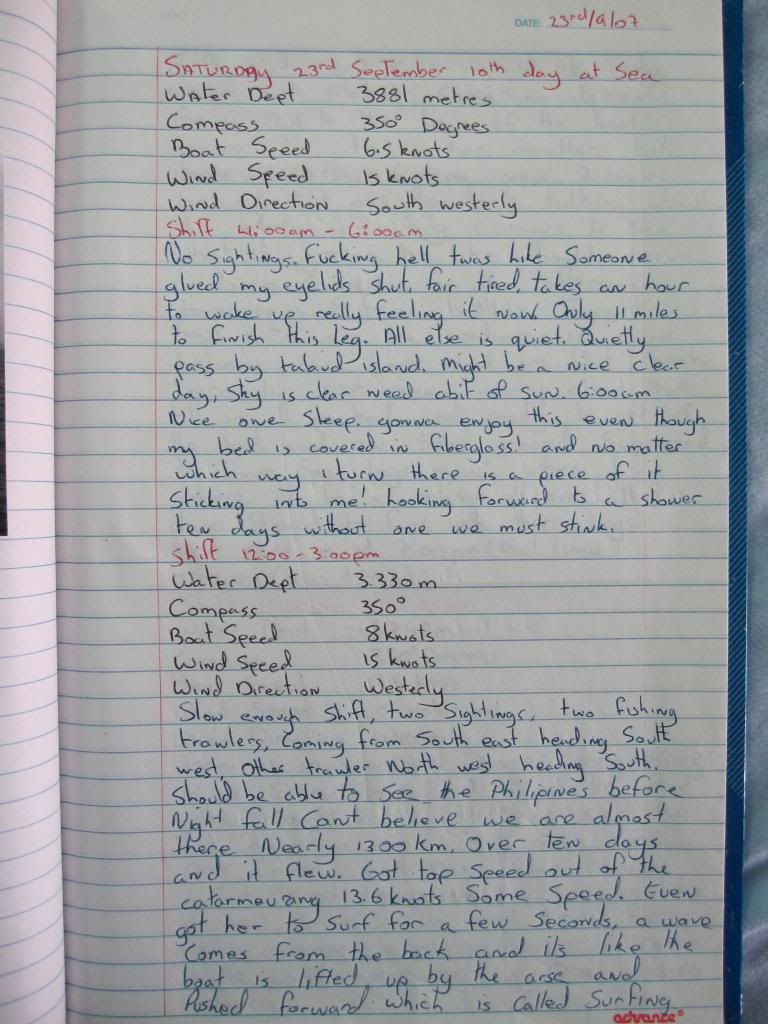 DATE: 23rd/9/07
SATURDAY 23rd September 10th day at Sea
Water Dept 3881 metres
Compass 350° Degrees
Boat Speed 6.5 knots
Wind Speed 15 knots
Wind Direction South westerly
Shift 4:00am - 6:00am
No Sightings. Fucking hell twas like Someone
glued my eyelids shut, fair tired, takes an hour
to wake up really feeling it now. Only 11 miles
to finish this leg. All else is quiet. Quietly
pass by island. Might be a nice clear
day, Sky is clear need abit of sun. 6:00am
Nice one Sleep. gonna enjoy this even though
my bed is covered in fiberglass! and no matter
which way i turn there is a piece of it
Sticking into me! Looking forward to a shower
ten days without one we must stink.
Shift 12:00 - 3:00pm
Water Dept 3.330m
Compass 350°
Boat Speed 8 knots
Wind Speed 15 knots
Wind Direction Westerly
Slow enough Shift, two Sightings, two fishing
trawlers, Coming from South east heading South
west, Other trawler North west heading South.
Should be able to See the Philipines before
Night fall Cant believe we are almost
there Nearly 1300 km, Over ten days
and it flew. Got top Speed out of the
13.6 knots Some Speed. Even
got her to Surf for a few Seconds, a wave
Comes from the back and its like the
boat is lifted up by the arse and
Pushed forward which is Called Surfing
advance®